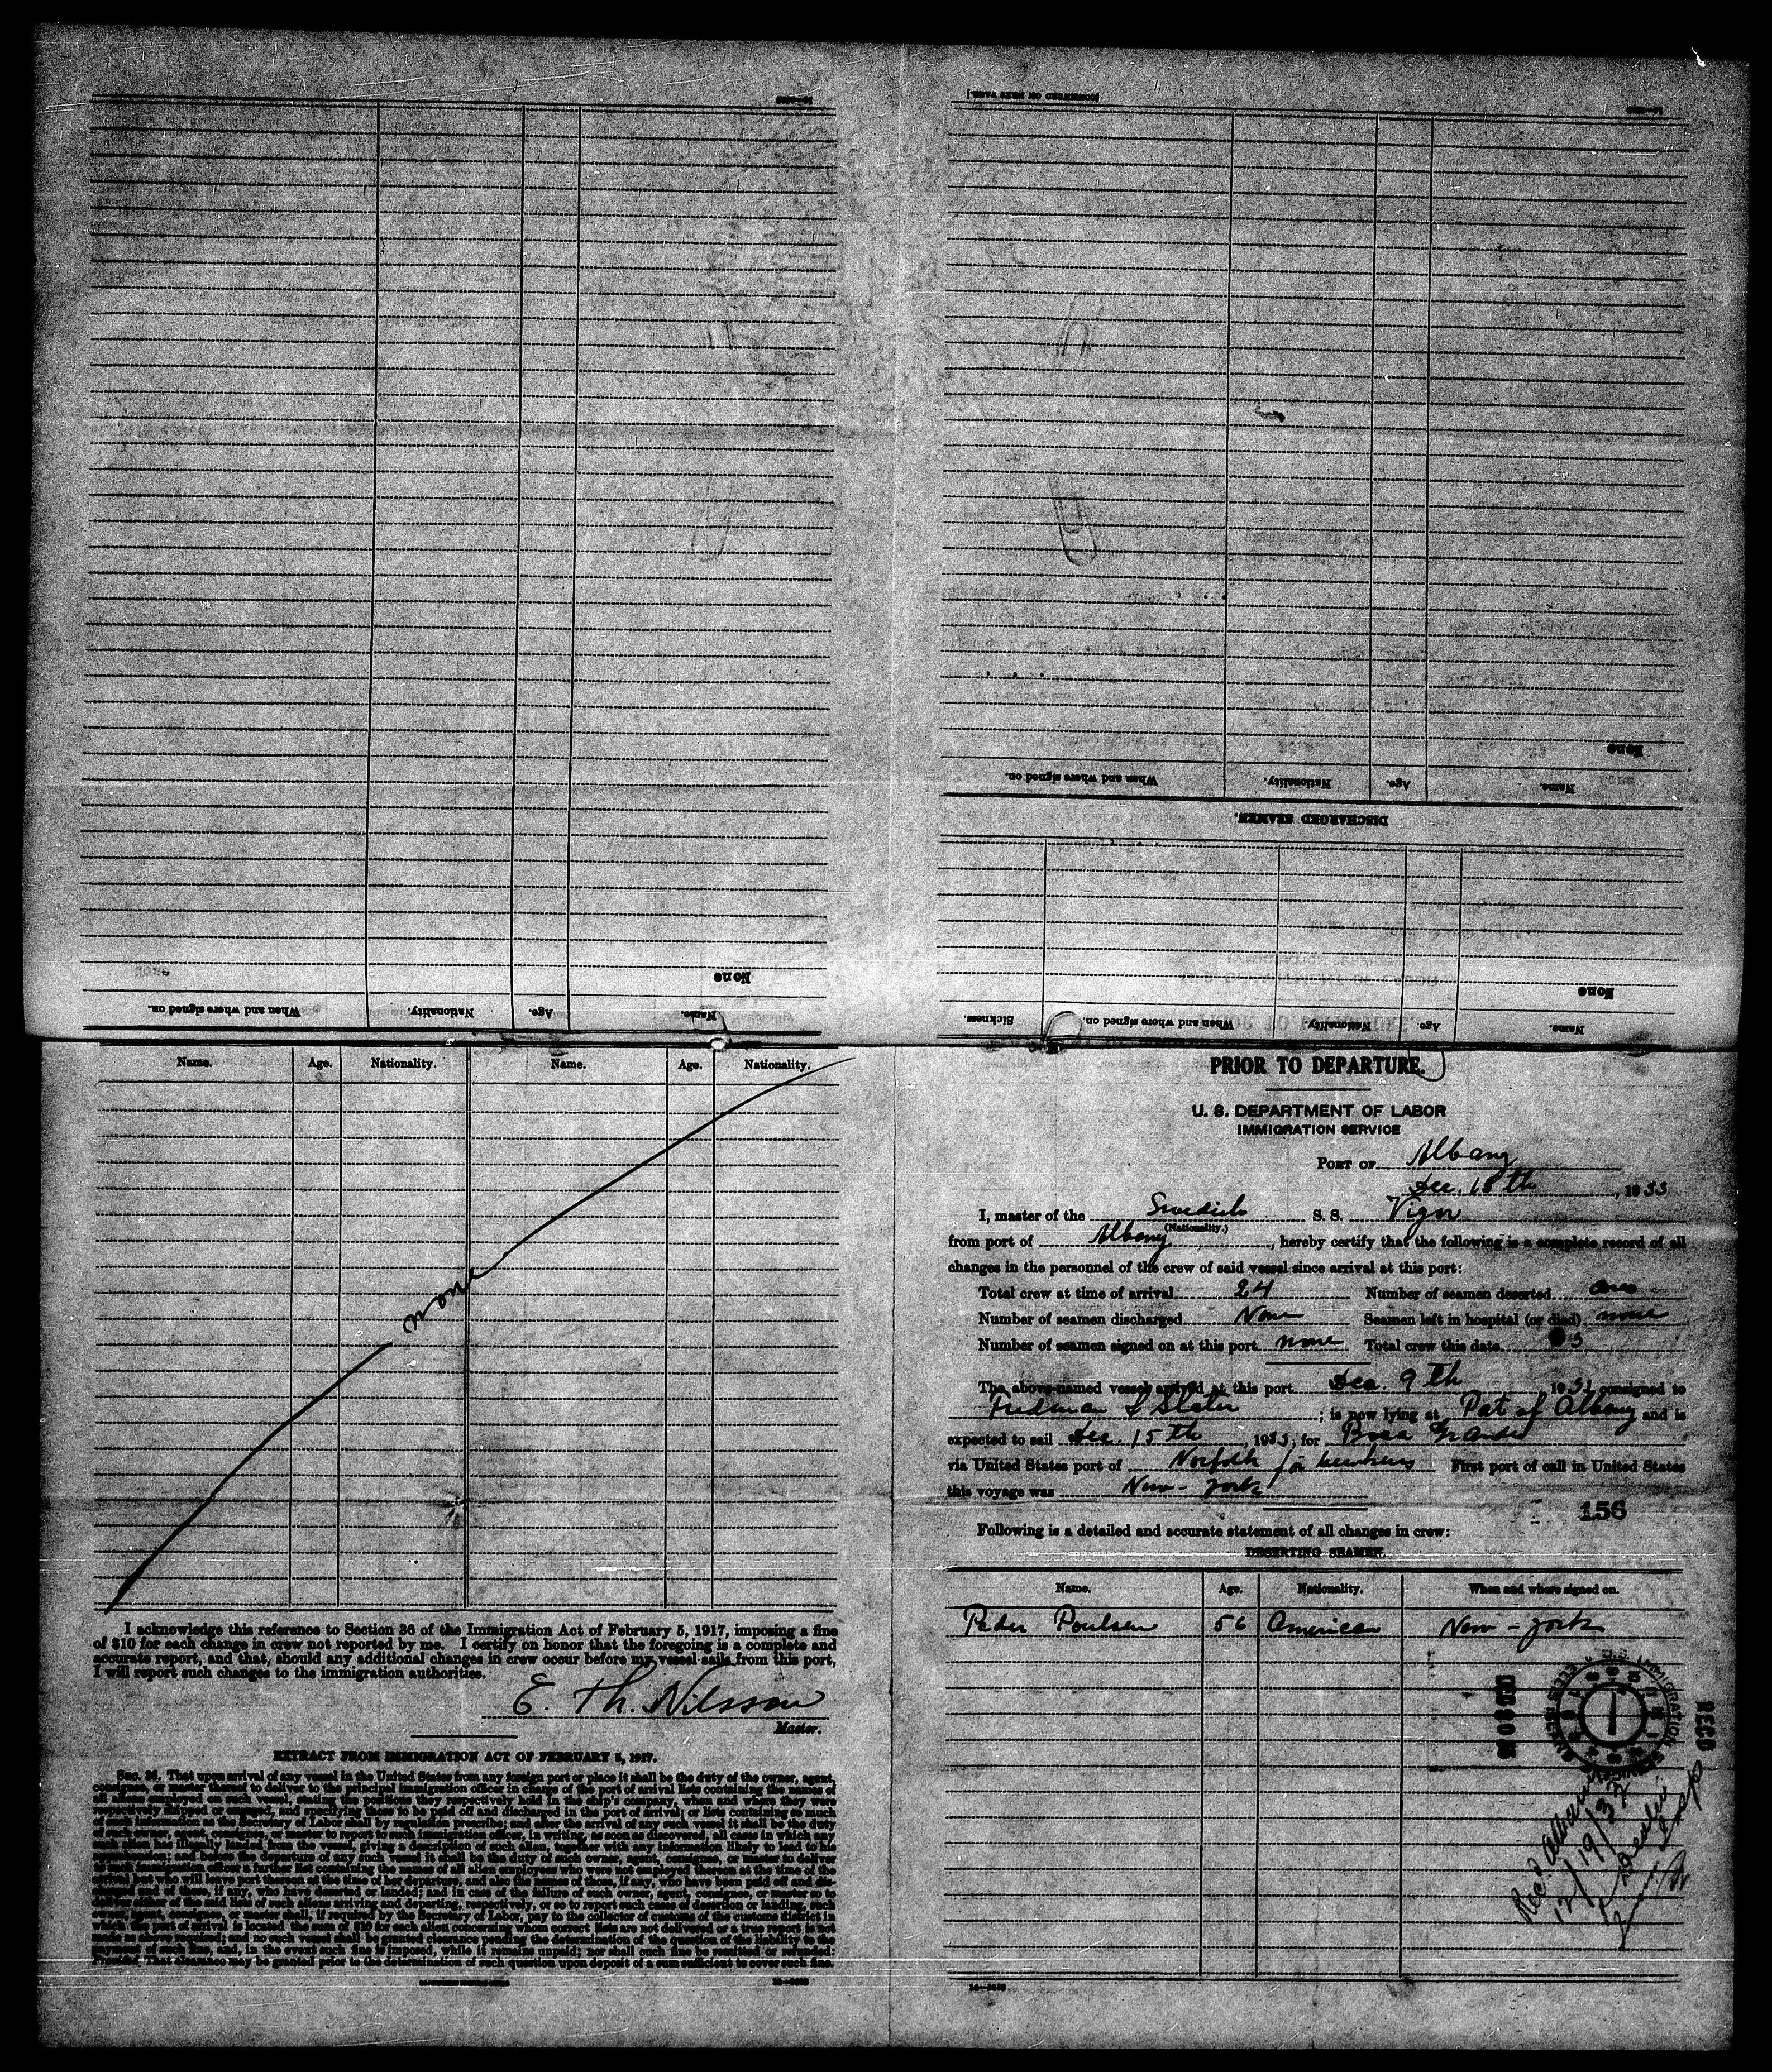 16—
[CONTINUED ON NEXT PAGE.]
When and where signed on.
Nationality.
Age.
Name.
None
When and where signed on.
Nationality.
Age.
Name.
None
DISCHARGED SEAMEN.
Sickness.
When and where signed on.
Nationality.
Age.
Name.
None
Name. Age. Nationality. Name. Age. Nationality.
none
I acknowledge this reference to Section 36 of the Immigration Act of February 5, 1917, imposing a fine
of $10 for each change in crew not reported by me. I certify on honor that the foregoing is a complete and
accurate report, and that, should any additional changes in crew occur before my vessel sails from this port,
I will report such changes to the immigration authorities.
E. Th. Nilsson
Master.
EXTRACT FROM IMMIGRATION ACT OF FEBRUARY 5, 1917.
Sec. 36. That upon arrival of any vessel in the United States from any foreign port or place it shall be the duty of the owner, agent,
consignee, or master thereof to deliver to the principal immigration officer in charge of the port of arrival lists containing the names of
all aliens employed on such vessel, stating the positions they respectively hold in the ship's company, when and where they were
respectively shipped or engaged, and specifying those to be paid off and discharged in the port of arrival; or lists containing so much
of such information as the Secretary of Labor shall by regulation prescribe; and after the arrival of any such vessel it shall be the duty
of such owner, agent, consignee, or master to report to such immigration officer, in writing, as soon as discovered, all cases in which any
such alien has illegally landed from the vessel, giving a description of such alien, together with any information likely to lead to his
apprehension; and before the departure of any such vessel it shall be the duty of such owner, agent, consignee, or master to deliver
to such immigration officer a further list containing the names of all alien employees who were not employed thereon at the time of the
arrival but who will leave port thereon at the time of her departure, and also the names of those, if any, who have been paid off and dis-
charged, and of those, if any, who have deserted or landed; and in case of the failure of such owner, agent, consignee, or master so to
deliver either of the said lists of such aliens arriving and departing, respectively, or so to report such cases of desertion or landing, such
owner, agent, consignee, or master shall, if required by the Secretary of Labor, pay to the collector of customs of the customs district in
which the port of arrival is located the sum of $10 for each alien concerning whom correct lists are not delivered or a true report is not
made as above required; and no such vessel shall be granted clearance pending the determination of the question of the liability to the
payment of such fine, and, in the event such fine is imposed, while it remains unpaid; nor shall such fine be remitted or refunded:
Provided, That clearance may be granted prior to the determination of such question upon deposit of a sum sufficient to cover such fine.
PRIOR TO DEPARTURE.
U. S. DEPARTMENT OF LABOR
IMMIGRATION SERVICE
PORT OF Albany
Dec. 15th, 1933
I, master of the Swedish S. S. Vigor
(Nationality.)
from port of Albany, hereby certify that the following is a complete record of all
changes in the personnel of the crew of said vessel since arrival at this port:
Total crew at time of arrival 24 Number of seamen deserted one
Number of seamen discharged None Seamen left in hospital (or died) none
Number of seamen signed on at this port none Total crew this date 3
The above-named vessel arrived at this port Dec. 9th 193 consigned to
Fredman & Slater; is now lying at Port of Albany and is
expected to sail Dec. 15th, 1933, for Boca Grande
via United States port of Norfolk for bunkers First port of call in United States
this voyage was New-York
156
Following is a detailed and accurate statement of all changes in crew:
DESERTING SEAMEN.
Name. Age. Nationality. When and where signed on.
Peder Poulsen 56 American New-York
RECD
U.S. IMMIGRATION SERVICE
Rec'd Albany
12/19/32